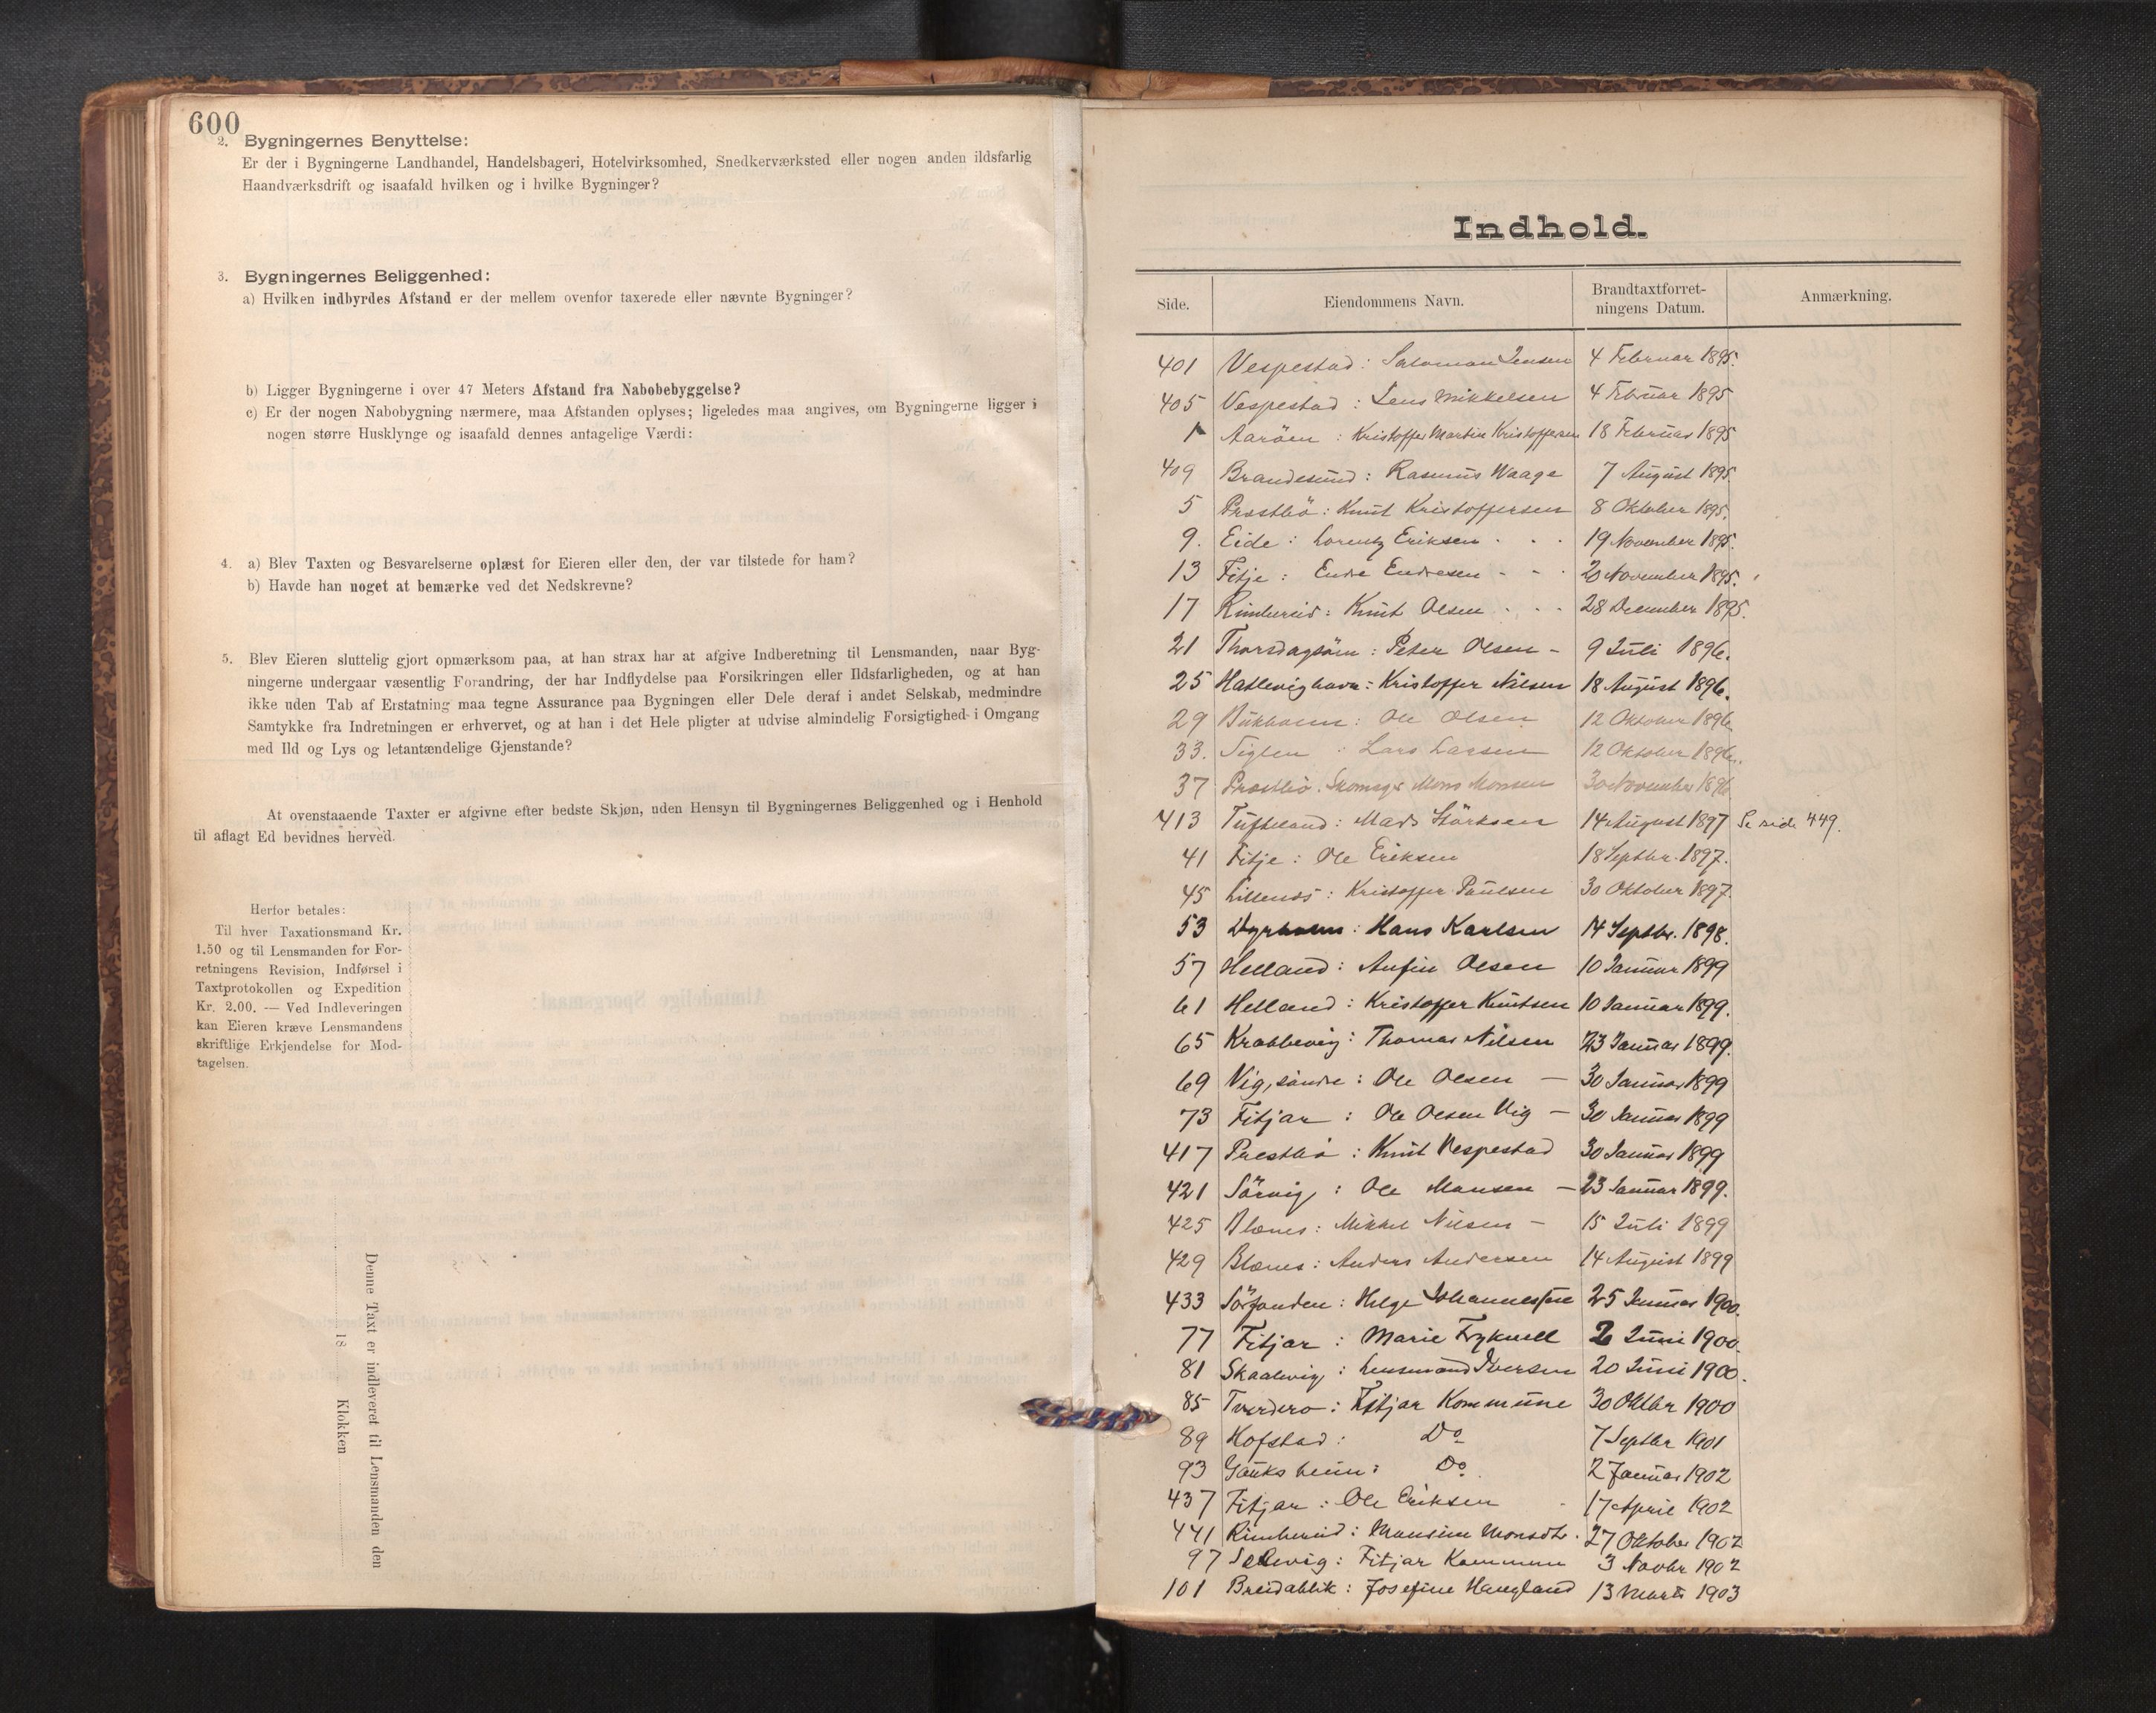 600
2. Bygningernes Benyttelse:
Er der i Bygningerne Landhandel, Handelsbageri, Hotelvirksomhed, Snedkerværksted eller nogen anden ildsfarlig
Haandværksdrift og isaafald hvilken og i hvilke Bygninger?
3. Bygningernes Beliggenhed:
a) Hvilken indbyrdes Afstand er der mellem ovenfor taxerede eller nævnte Bygninger?
b) Ligger Bygningerne i over 47 Meters Afstand fra Nabobebyggelse?
c) Er der nogen Nabobygning nærmere, maa Afstanden oplyses; ligeledes maa angives, om Bygningerne ligger i
nogen større Husklynge og isaafald dennes antagelige Værdi:
4. a) Blev Taxten og Besvarelserne oplæst for Eieren eller den, der var tilstede for ham?
b) Havde han noget at bemærke ved det Nedskrevne?
5. Blev Eieren sluttelig gjort opmærksom paa, at han strax har at afgive Indberetning til Lensmanden, naar Byg-
ningerne undergaar væsentlig Forandring, der har Indflydelse paa Forsikringen eller Ildsfarligheden, og at han
ikke uden Tab af Erstatning maa tegne Assurance paa Bygningen eller Dele deraf i andet Selskab, medmindre
Samtykke fra Indretningen er erhvervet, og at han i det Hele pligter at udvise almindelig Forsigtighed i Omgang
med Ild og Lys og letantændelige Gjenstande?
At ovenstaaende Taxter er afgivne efter bedste Skjøn, uden Hensyn til Bygningernes Beliggenhed og i Henhold
til aflagt Ed bevidnes herved.
Herfor betales:
Til hver Taxationsmand Kr.
1.50 og til Lensmanden for For-
retningens Revision, Indførsel i
Taxtprotokollen og Expedition
Kr. 2.00. — Ved Indleveringen
kan Eieren kræve Lensmandens
skriftlige Erkjendelse for Mod-
tagelsen.
Denne Taxt er indleveret til Lensmanden den
18 Klokken
Indhold.
Side. Eiendommens Navn. Brandtaxtforret-
ningens Datum. Anmærkning.
401 Vespestad: Salomon Jensen 4 Februar 1895.
405 Vespestad: Jens Mikkelsen 4 Februar 1895
1 Aarøen: Kristoffer Martin Kristoffersen 18 Februar 1895
409 Brandesund: Rasmus Waage 7 August 1895.
5 Præstbö: Knut Kristoffersen 8 Oktober 1895.
9. Eide: Lorentz Eriksen 19 November 1895.
13 Fitje: Endre Endresen 20 November 1895.
17 Rimbereid: Knut Olsen 28 December 1895.
21 Thorsdagsöen: Peter Olsen - 9 Juli 1896.
25 Hatlevighavn: Kristoffer Nilsen 18 August 1896.
29 Bukholm: Ole Olsen 12 Oktober 1896
33. Siglen: Lars Larsen 12 Oktober 1896.
37 Præstbö. Skomager Mons Monsen 30 November 1896
413 Tufteland: Mads Störksen 14 August 1897 Se side 449.
41 Fitje: Ole Eriksen 18 Septbr. 1897.
45 Lillenös: Kristoffer Paulsen 30 Oktober 1897.
53 Dyrholm: Hans Karlsen 14 Septbr. 1898.
57 Helland: Anfin Olsen 10 Januar 1899
61 Helland: Kristoffer Knutsen 10 Januar 1899.
65 Krabbevig: Thomas Nilsen 23 Januar 1899.
69 Vig, söndre: Ole Olsen — 30 Januar 1899
73 Fitjar: Ole Olsen Vig — 30 Januar 1899
417 Prestbö: Knut Vespestad 30 Januar 1899
421 Sörvig: Ole Monsen — 23 Januar 1899.
425 Blænes: Mikkel Nilsen - 15 Juli 1899
429 Blænes: Anders Andersen 14 August 1899
433 Sörfonden: Helge Johannessen 25 Januar 1900.
77 Fitjar: Marie Fryknell 2 Juni 1900.
81 Skaalevig: Lensmand Iversen 20 Juni 1900.
85 Tverderö: Fitjar Kommune 30 Oktbr 1900
89 Hofstad: Do 7 Septbr 1901
93 Gauksheim: Do 2 Januar 1902
437 Fitjar: Ole Eriksen 17 April 1902
441 Rimbereid: Monsine Monsdtr. 27 Oktober 1902
97 Selevig: Fitjar Kommune 3 Novbr 1902
101 Breidablik: Josefine Haugland 13 Marts 1903